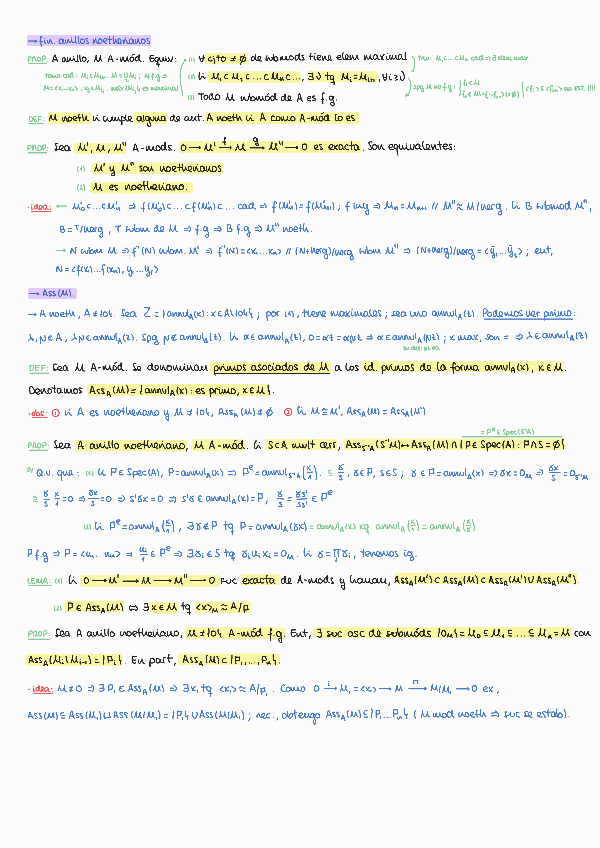 → fin. anillos noetherianos
PROP: A anillo, M A-mód. Equiv: (1) ∀ cjto ≠ ∅ de submods tiene elem maximal
(2) Si M₁ ⊂ M₂ ⊂ ... ⊂ Mₙ ⊂ ..., ∃ν tq Mᵢ = Mᵢ₊₁, ∀i ≥ ν
(3) Todo M submód de A es f.g.
DEF: M noeth si cumple alguna de ant. A noeth si A como A-mód lo es
PROP: Sea M', M, M'' A-mods. 0 → M' →f M →g M'' → 0 es exacta. Son equivalentes:
(1) M' y M'' son noetherianos
(2) M es noetheriano.
·idea: ← M'₀ ⊂ ... ⊂ M'ₙ ⇒ f(M'₀) ⊂ ... ⊂ f(M'ₙ) ⊂ ... cad ⇒ f(M'ₙ) = f(M'ₙ₊₁); f iny ⇒ Mₙ = Mₙ₊₁ // M'' ≈ M/kerg. Si B submod M'',
B = T/kerg, T subm de M ⇒ f.g ⇒ B f.g ⇒ M'' noeth.
→ N subm M ⇒ f⁻¹(N) subm. M' ⇒ f⁻¹(N) = <x₁...xₙ> // (N+kerg)/kerg subm M'' ⇒ (N+kerg)/kerg = <ȳ₁...ȳₛ>; ent,
N = <f(x₁)...f(xₙ), y₁...yₛ>
→ Ass(M).
→ A noeth, A ≠ {0}. Sea Z = {annul_A(x): x ∈ A\{0}}; por (1), tiene maximales; sea uno annul_A(z). Podemos ver primo:
λ, μ ∈ A, λμ ∈ annul_A(z). Spg μ ∉ annul_A(z). Si α ∈ annul_A(z), 0 = αz = αμz ⇒ α ∈ annul_A(μz); x max, son = ⇒ λ ∈ annul_A(z)
DEF: Sea M A-mód. Se denominan primos asociados de M a los id. primos de la forma annul_A(x), x ∈ M.
Denotamos Ass_A(M) = {annul_A(x): es primo, x ∈ M}.
·obs: ① si A es noetheriano y M ≠ {0}, Ass_A(M) ≠ ∅ ② Si M ≅ M', Ass_A(M) = Ass_A(M')
= Pᵉ ∈ Spec(S⁻¹A)
PROP: Sea A anillo noetheriano, M A-mód. Si S ⊂ A mult cerr, Ass_{S⁻¹A}(S⁻¹M) ↔ Ass_A(M) ∩ {P ∈ Spec(A): P ∩ S = ∅}
Q.v. que: (1) Si P ∈ Spec(A), P = annul_A(x) ⇒ Pᵉ = annul_{S⁻¹A}(x/1). ⊆ γ/s, γ ∈ P, s ∈ S; γ ∈ P = annul(x) ⇒ γx = 0_M ⇒ γx/s = 0_{S⁻¹M}
⊇ γ/s x/1 = 0 ⇒ γx/s = 0 ⇒ s'γx = 0 ⇒ s'γ ∈ annul_A(x) = P, γ/s = γs'/ss' ∈ Pᵉ
(2) Si Pᵉ = annul_A(x/1), ∃γ ∉ P tq P = annul_A(γx)
P f.g ⇒ P = <u₁...uₙ> ⇒ uᵢ/1 ∈ Pᵉ ⇒ ∃γᵢ ∈ S tq γᵢuᵢx = 0_M. Si γ = ∏γᵢ, tenemos ig.
LEMA: (1) Si 0 → M' → M → M'' → 0 suc exacta de A-mods y homom, Ass_A(M') ⊂ Ass_A(M) ⊂ Ass_A(M') ∪ Ass_A(M'').
(2) P ∈ Ass_A(M) ⇔ ∃x ∈ M tq <x>_M ≈ A/P
PROP: Sea A anillo noetheriano, M ≠ {0} A-mód f.g. Ent, ∃ suc asc de submóds {0_M} = M₀ ⊆ M₁ ⊆ ... ⊆ Mₙ = M con
Ass_A(Mᵢ/Mᵢ₋₁) = {Pᵢ}. En part, Ass_A(M) ⊂ {P₁,...,Pₙ}.
·idea: M ≠ 0 ⇒ ∃P₁ ∈ Ass_A(M) ⇒ ∃x₁ tq <x₁> ≈ A/P₁. Como 0 → M₁ = <x₁> → M → M/M₁ → 0 ex,
Ass(M) ⊆ Ass(M₁) ∪ Ass(M/M₁) = {P₁} ∪ Ass(M/M₁); rec., obtengo Ass_A(M) ⊆ {P₁...Pₙ} (M mod noeth ⇒ suc se estab).